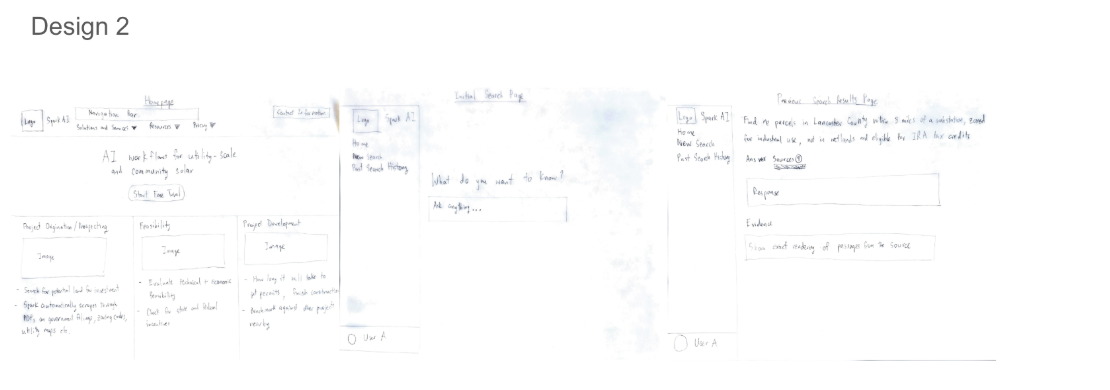 Design 2
Homepage
Logo
Spark AI
Navigation Bar
Contact Information
Solutions and Services ▼ Resources ▼ Pricing ▼
AI workflows for utility-scale
and community solar
Start Free Trial
Project Origination / Prospecting
Image
- Search for potential land for investment
- Spark automatically scrapes through
PDFs on government filings, zoning codes,
utility maps etc.
Feasibility
Image
- Evaluate technical + economic
feasibility
- Check for state and federal
incentives
Project Development
Image
- How long it will take to
get permits, finish construction
- Benchmark against other project
nearby
Initial Search Page
Logo
Spark AI
Home
New Search
Past Search History
What do you want to know?
Ask anything...
User A
Previous Search Results Page
Logo
Spark AI
Home
New Search
Past Search History
Find me parcels in Lancaster County within 5 miles of a substation, zoned
for industrial use, not in wetlands and eligible for IRA tax credits
Answer Sources
Response
Evidence
Show exact rendering of passages from the source
User A